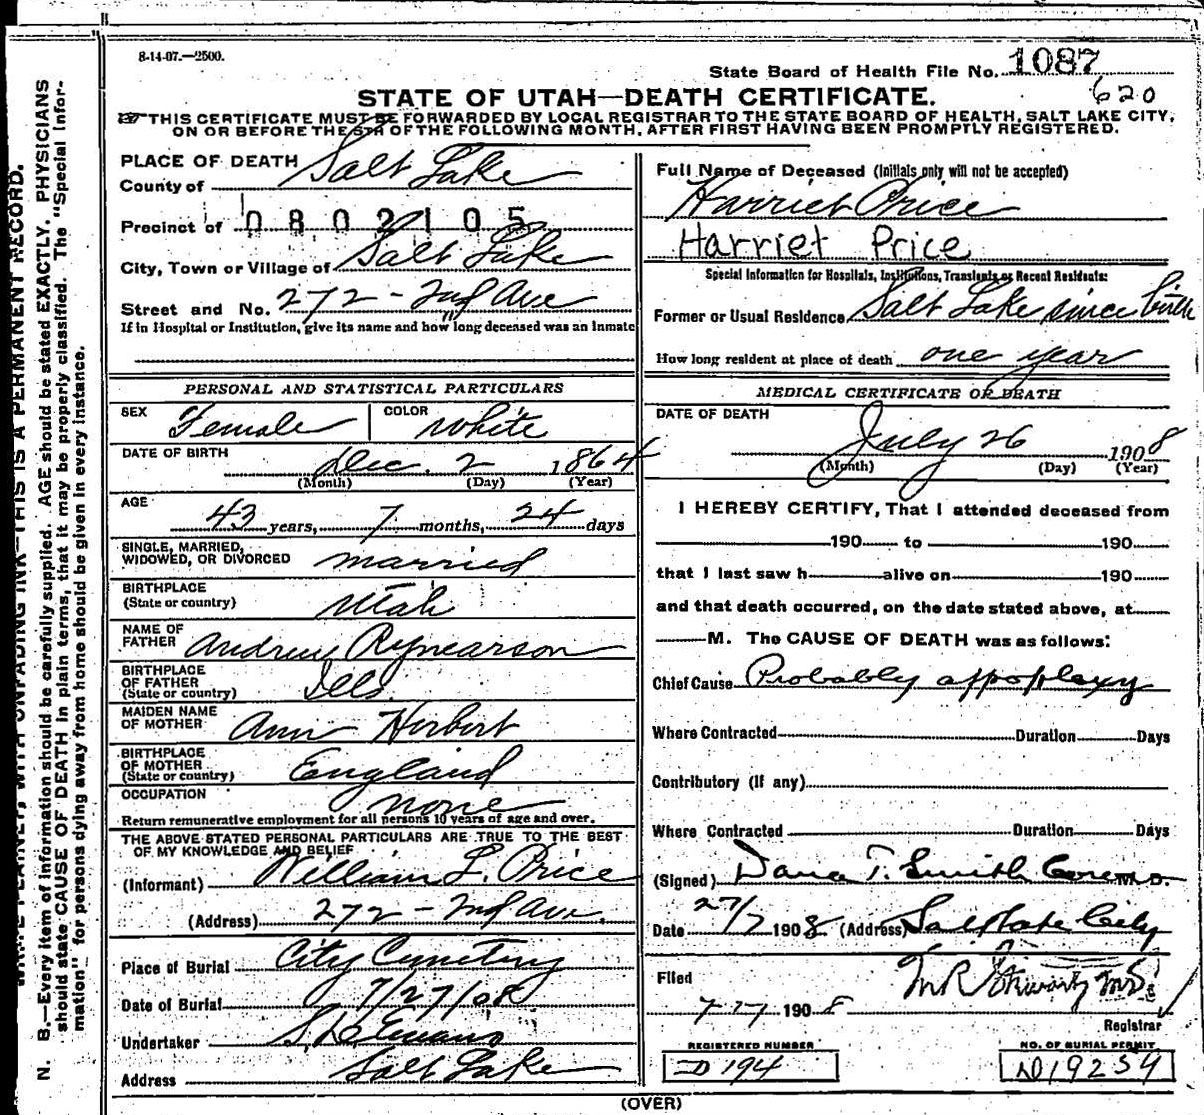 8-14-07.—2500.
State Board of Health File No. 1087
620
STATE OF UTAH—DEATH CERTIFICATE.
THIS CERTIFICATE MUST BE FORWARDED BY LOCAL REGISTRAR TO THE STATE BOARD OF HEALTH, SALT LAKE CITY,
ON OR BEFORE THE 5TH OF THE FOLLOWING MONTH, AFTER FIRST HAVING BEEN PROMPTLY REGISTERED.
PLACE OF DEATH
County of Salt Lake
Precinct of 0802105
City, Town or Village of Salt Lake
Street and No. 272 - 2nd Ave
If in Hospital or Institution, give its name and how long deceased was an Inmate
PERSONAL AND STATISTICAL PARTICULARS
SEX Female COLOR White
DATE OF BIRTH Dec. 2 1864
(Month) (Day) (Year)
AGE
43 years, 7 months, 24 days
SINGLE, MARRIED,
WIDOWED, OR DIVORCED married
BIRTHPLACE
(State or country) Utah
NAME OF
FATHER Andrew Rynearson
BIRTHPLACE
OF FATHER
(State or country) Ills
MAIDEN NAME
OF MOTHER Ann Herbert
BIRTHPLACE
OF MOTHER
(State or country) England
OCCUPATION none
Return remunerative employment for all persons 10 years of age and over.
THE ABOVE STATED PERSONAL PARTICULARS ARE TRUE TO THE BEST
OF MY KNOWLEDGE AND BELIEF
(Informant) William L. Price
(Address) 272 - 2nd Ave.
Place of Burial City Cemetery
Date of Burial 7/27/08
Undertaker Evans
Address Salt Lake
Full Name of Deceased (Initials only will not be accepted)
Harriet Price
Harriet Price
Special Information for Hospitals, Institutions, Transients or Recent Residents:
Former or Usual Residence Salt Lake since birth
How long resident at place of death one year
MEDICAL CERTIFICATE OF DEATH
DATE OF DEATH
July 26 1908
(Month) (Day) (Year)
I HEREBY CERTIFY, That I attended deceased from
190 to 190
that I last saw h alive on 190
and that death occurred, on the date stated above, at
M. The CAUSE OF DEATH was as follows:
Chief Cause Probably appoplexy
Where Contracted Duration Days
Contributory (If any)
Where Contracted Duration Days
(Signed) Dana T. Smith M.D.
Date 27/7 1908 (Address) Salt Lake City
Filed
7-27 1908
Registrar
REGISTERED NUMBER
D 194
NO. OF BURIAL PERMIT
D19254
(OVER)
WRITE PLAINLY, WITH UNFADING INK—THIS IS A PERMANENT RECORD.
N. B.—Every item of information should be carefully supplied. AGE should be stated EXACTLY. PHYSICIANS
should state CAUSE OF DEATH in plain terms, that it may be properly classified. The "Special Infor-
mation" for persons dying away from home should be given in every instance.